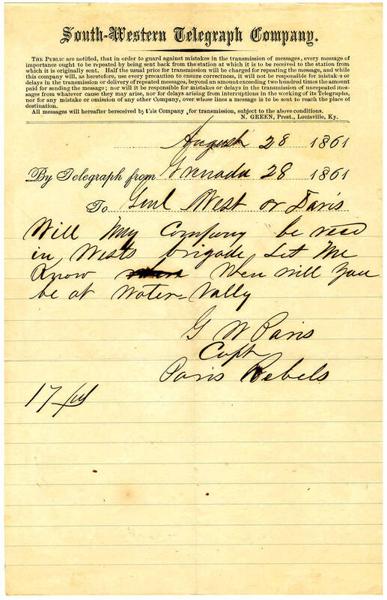 South-Western Telegraph Company.
THE PUBLIC are notified, that in order to guard against mistakes in the transmission of messages, every message of
importance ought to be repeated by being sent back from the station at which it is to be received to the station from
which it is originally sent. Half the usual price for transmission will be charged for repeating the message, and while
this company will, as heretofore, use every precaution to ensure correctness, it will not be responsible for mistakes or
delays in the transmission or delivery of repeated messages, beyond an amount exceeding two hundred times the amount
paid for sending the message; nor will it be responsible for mistakes or delays in the transmission of unrepeated mes-
sages from whatever cause they may arise, nor for delays arising from interruptions in the working of its Telegraphs,
nor for any mistake or omission of any other Company, over whose lines a message is to be sent to reach the place of
destination.
All messages will hereafter be received by this Company for transmission, subject to the above conditions.
N. GREEN, Prest., Louisville, Ky.
August 28 1861
By Telegraph from Grenada 28 1861
To Genl West or Davis
Will My Company be recd
in Wests brigade Let Me
Know When will you
be at Water-Vally
G W Paris
Capt
Paris Rebels
17